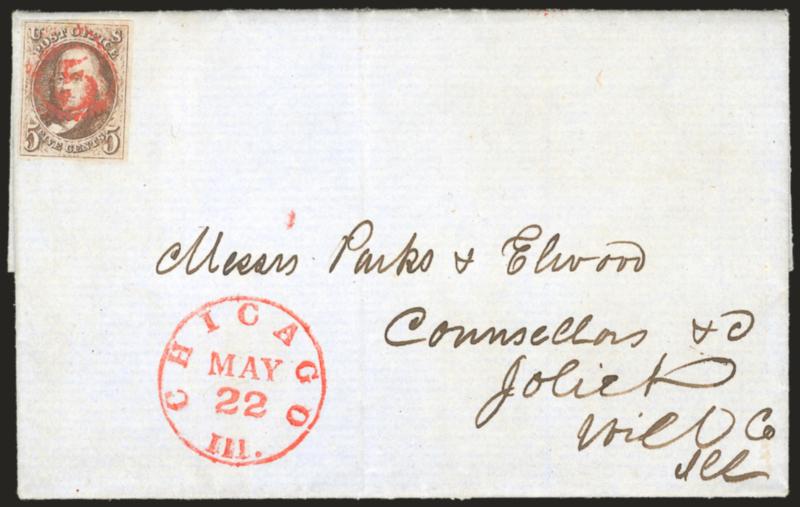 U S
POST OFFICE
5 FIVE CENTS 5
5
Messrs Parks & Elwood
Counsellors &c
Joliet
Will Co
Ill
CHICAGO
MAY
22
Ill.